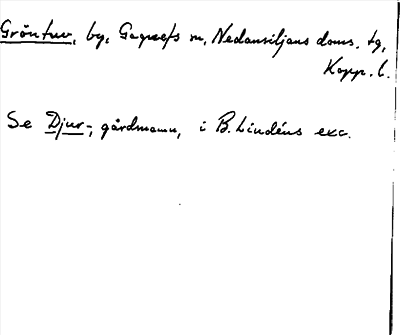 Gröntuv, by, Gagnefs sn, Nedansiljans doms. tg,
Kopp. l.
Se Djur-, gårdmamn, i B. Lindéns exc.